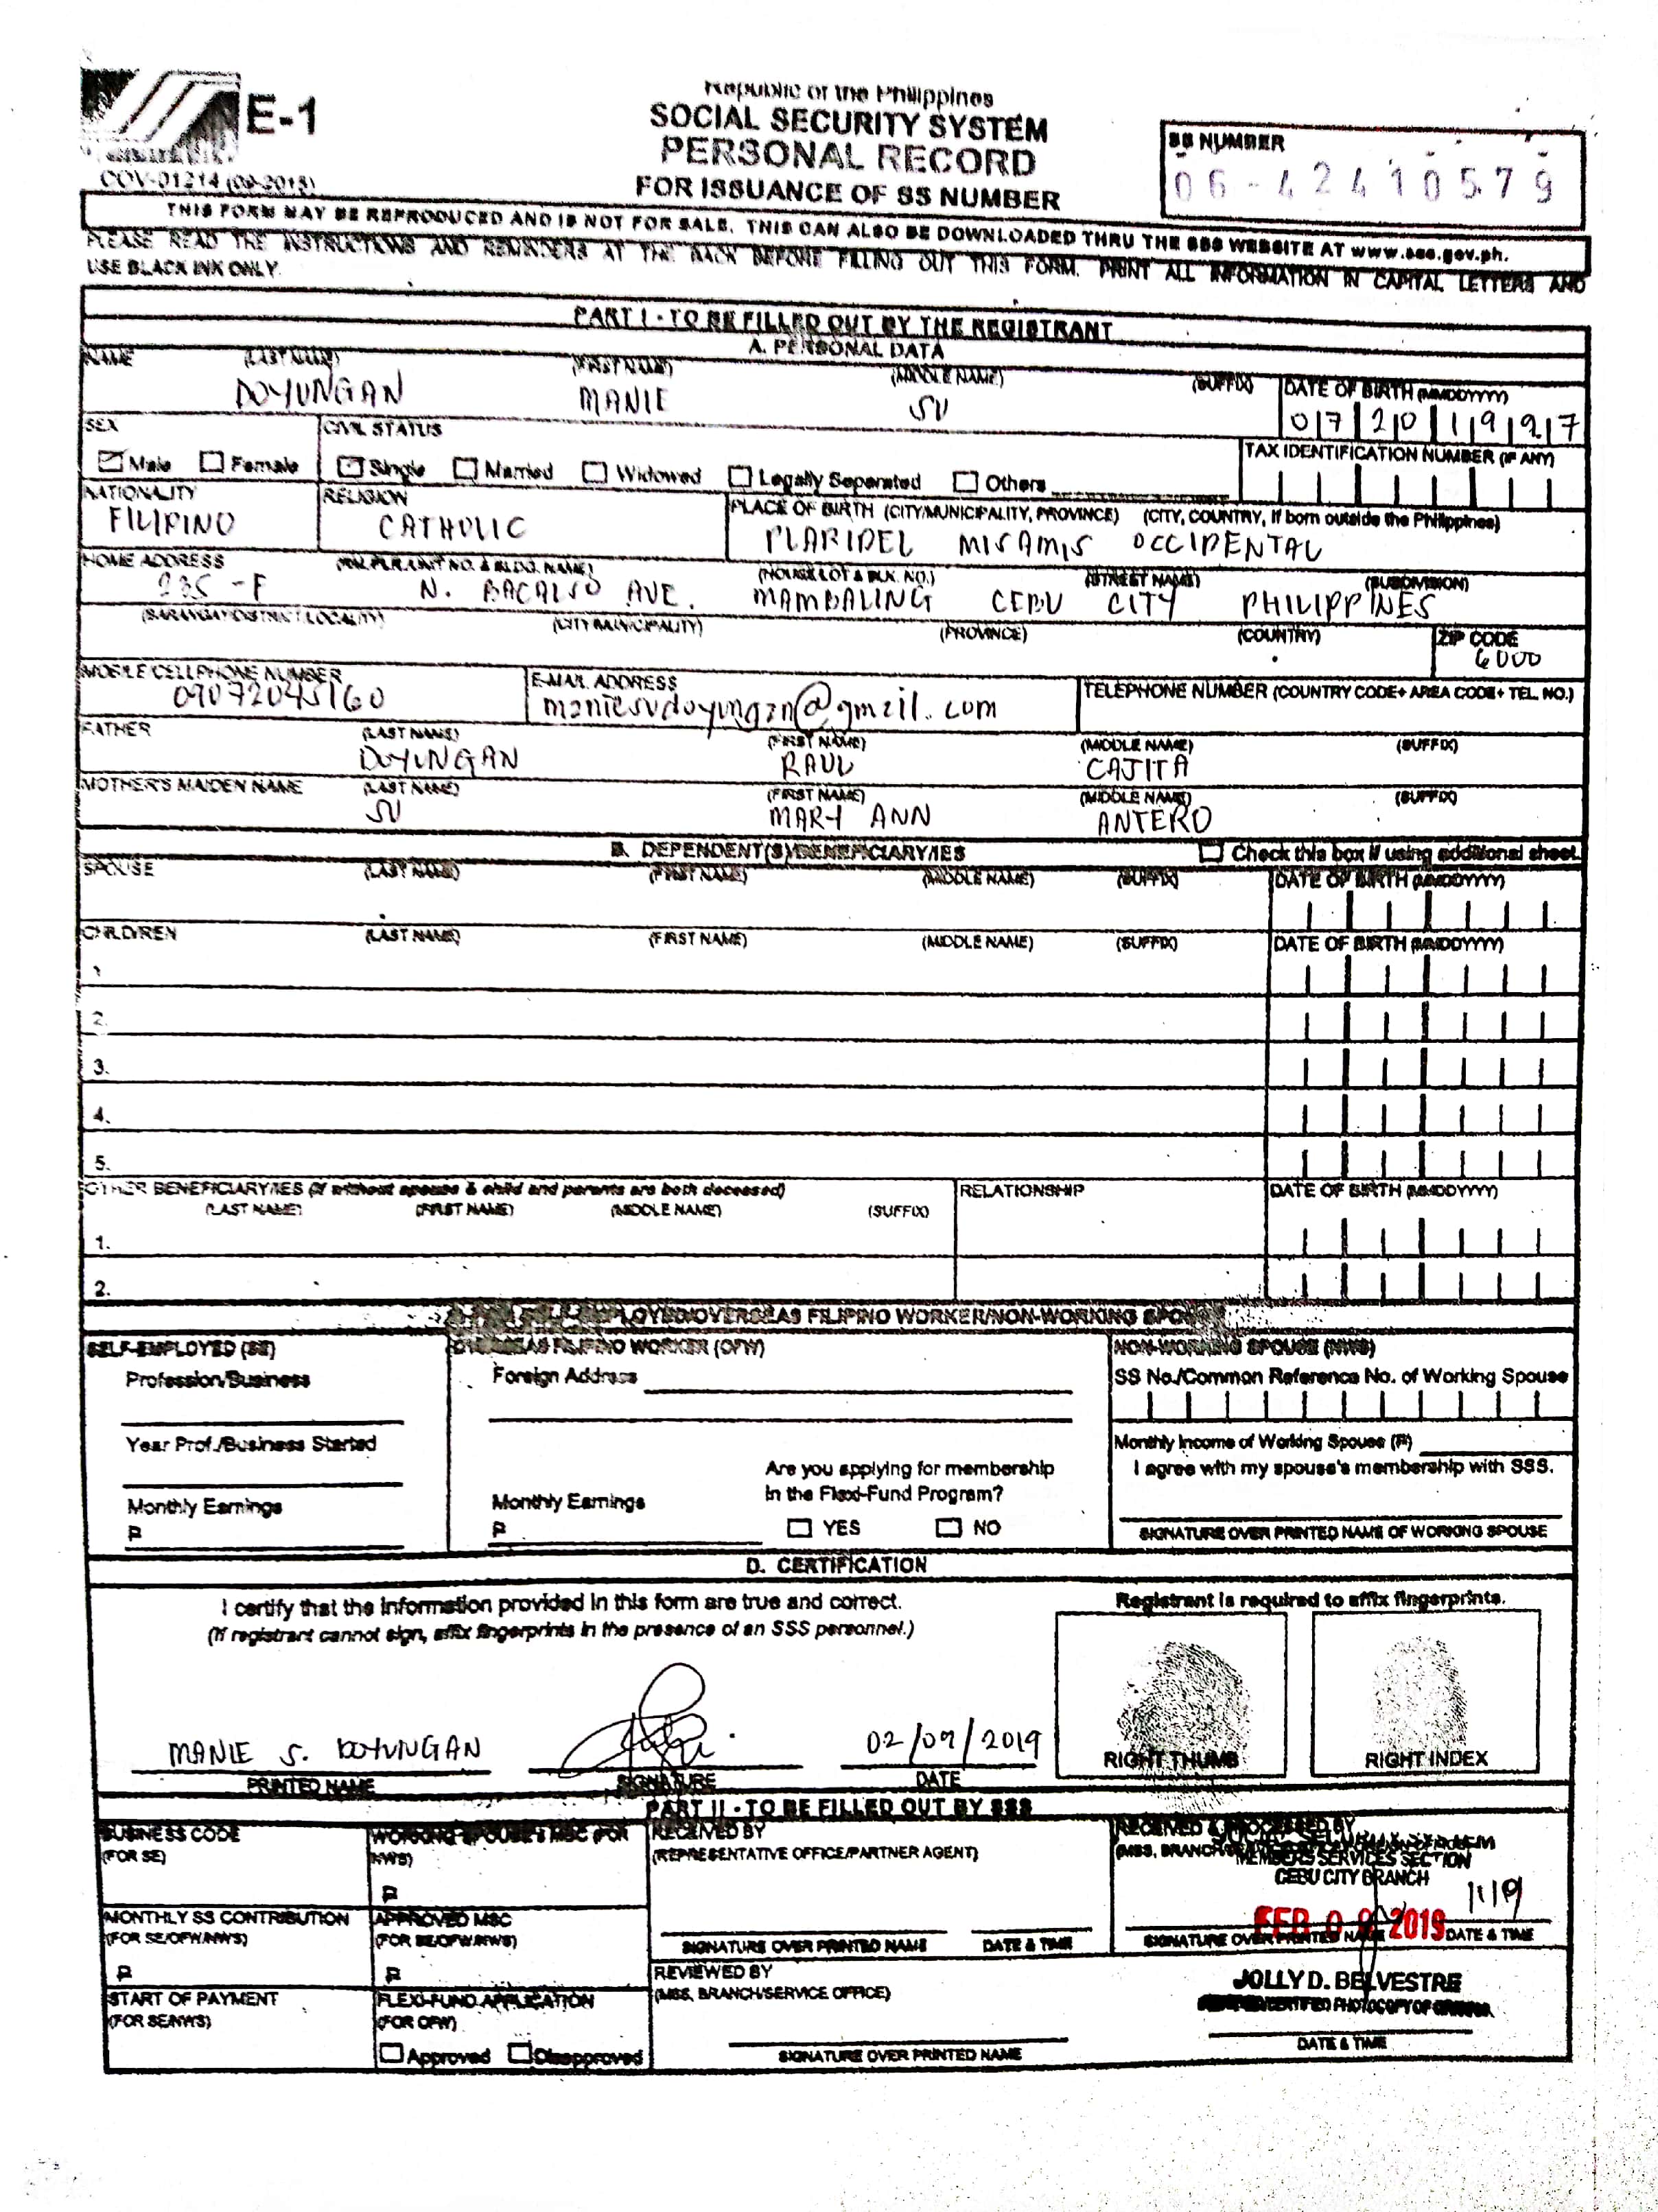 E-1
COV-01214 (09-2015)
Republic of the Philippines
SOCIAL SECURITY SYSTEM
PERSONAL RECORD
FOR ISSUANCE OF SS NUMBER
SS NUMBER
06-42410579
THIS FORM MAY BE REPRODUCED AND IS NOT FOR SALE. THIS CAN ALSO BE DOWNLOADED THRU THE SSS WEBSITE AT www.sss.gov.ph.
PLEASE READ THE INSTRUCTIONS AND REMINDERS AT THE BACK BEFORE FILLING OUT THIS FORM. PRINT ALL INFORMATION IN CAPITAL LETTERS AND
USE BLACK INK ONLY.
PART I - TO BE FILLED OUT BY THE REGISTRANT
A. PERSONAL DATA
NAME (LAST NAME) (FIRST NAME) (MIDDLE NAME) (SUFFIX) DATE OF BIRTH (MMDDYYYY)
DOYUNGAN MANIE SU 07201997
SEX CIVIL STATUS TAX IDENTIFICATION NUMBER (IF ANY)
Male Female Single Married Widowed Legally Separated Others
NATIONALITY RELIGION PLACE OF BIRTH (CITY/MUNICIPALITY, PROVINCE) (CITY, COUNTRY, if born outside the Philippines)
FILIPINO CATHOLIC PLARIDEL MISAMIS OCCIDENTAL
HOME ADDRESS (RM./FLR./UNIT NO. & BLDG. NAME) (HOUSE/LOT & BLK. NO.) (STREET NAME) (SUBDIVISION)
235 -F N. BACALSO AVE. MAMBALING CEBU CITY PHILIPPINES
(BARANGAY/DISTRICT/LOCALITY) (CITY/MUNICIPALITY) (PROVINCE) (COUNTRY) ZIP CODE
6000
MOBILE/CELLPHONE NUMBER E-MAIL ADDRESS TELEPHONE NUMBER (COUNTRY CODE+ AREA CODE+ TEL. NO.)
09072045160 maniesudoyungan@gmail.com
FATHER (LAST NAME) (FIRST NAME) (MIDDLE NAME) (SUFFIX)
DOYUNGAN RAUL CAJITA
MOTHER'S MAIDEN NAME (LAST NAME) (FIRST NAME) (MIDDLE NAME) (SUFFIX)
SU MARY ANN ANTERO
B. DEPENDENT(S)/BENEFICIARY/IES Check this box if using additional sheet.
SPOUSE (LAST NAME) (FIRST NAME) (MIDDLE NAME) (SUFFIX) DATE OF BIRTH (MMDDYYYY)
CHILDREN (LAST NAME) (FIRST NAME) (MIDDLE NAME) (SUFFIX) DATE OF BIRTH (MMDDYYYY)
1.
2.
3.
4.
5.
OTHER BENEFICIARY/IES (if without spouse & child and parents are both deceased) RELATIONSHIP DATE OF BIRTH (MMDDYYYY)
(LAST NAME) (FIRST NAME) (MIDDLE NAME) (SUFFIX)
1.
2.
EMPLOYED/OVERSEAS FILIPINO WORKER/NON-WORKING SPOUSE
SELF-EMPLOYED (SE) OVERSEAS FILIPINO WORKER (OFW) NON-WORKING SPOUSE (NWS)
Profession/Business Foreign Address SS No./Common Reference No. of Working Spouse
Year Prof./Business Started Monthly Income of Working Spouse (₱)
Are you applying for membership I agree with my spouse's membership with SSS.
Monthly Earnings Monthly Earnings in the Flexi-Fund Program?
₱ ₱ YES NO SIGNATURE OVER PRINTED NAME OF WORKING SPOUSE
D. CERTIFICATION
I certify that the information provided in this form are true and correct. Registrant is required to affix fingerprints.
(If registrant cannot sign, affix fingerprints in the presence of an SSS personnel.)
MANIE S. DOYUNGAN 02/09/2019 RIGHT THUMB RIGHT INDEX
PRINTED NAME SIGNATURE DATE
PART II - TO BE FILLED OUT BY SSS
BUSINESS CODE WORKING SPOUSE'S MSC (FOR RECEIVED BY RECEIVED & PROCESSED BY
(FOR SE) NWS) (REPRESENTATIVE OFFICE/PARTNER AGENT) (MSS, BRANCH
SOCIAL SECURITY SYSTEM
MEMBERS SERVICES SECTION
CEBU CITY BRANCH
₱ 1119
MONTHLY SS CONTRIBUTION APPROVED MSC FEB 09 2019
(FOR SE/OFW/NWS) (FOR SE/OFW/NWS) SIGNATURE OVER PRINTED NAME DATE & TIME SIGNATURE OVER PRINTED NAME DATE & TIME
₱ ₱ REVIEWED BY
(MSS, BRANCH/SERVICE OFFICE) JOLLY D. BELVESTRE
START OF PAYMENT FLEXI-FUND APPLICATION CERTIFIED PHOTOCOPY OF
(FOR SE/NWS) (FOR OFW) DATE & TIME
Approved Disapproved SIGNATURE OVER PRINTED NAME